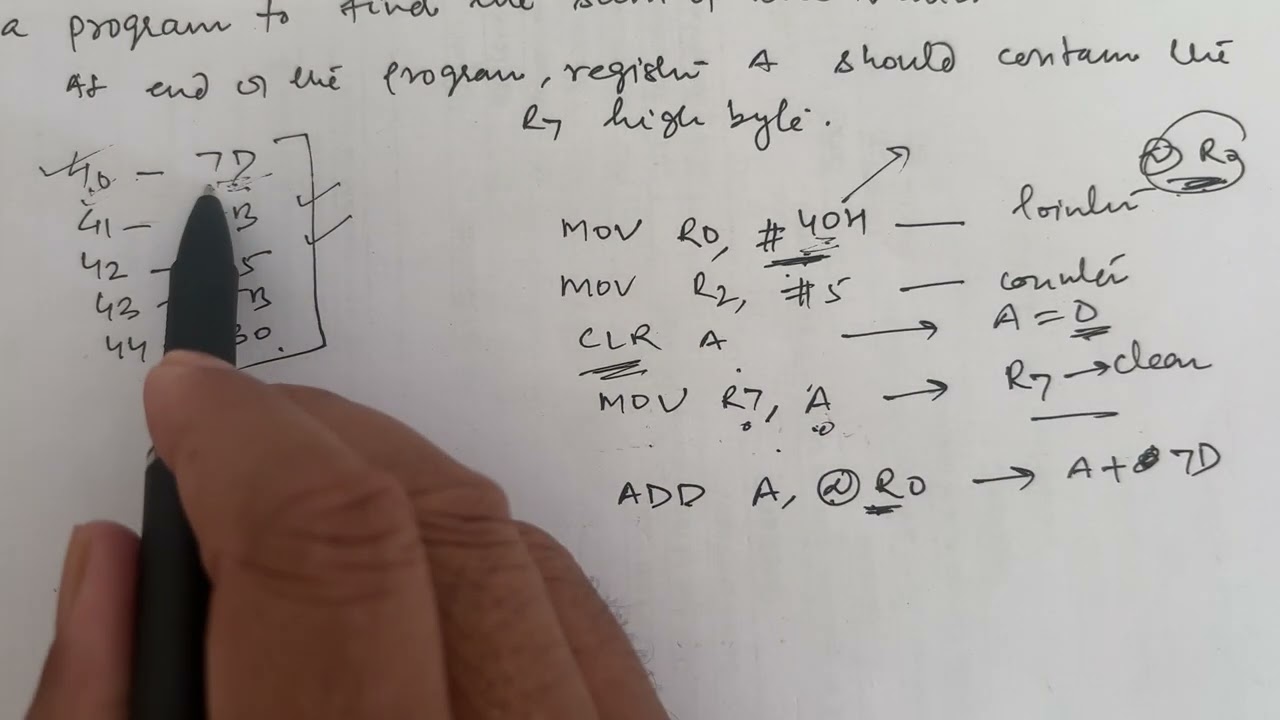 a program to find the sum of
At end of the program, register A should contain the
R7 high byte.
40 - 7D
41 - B
42 - 5
43 - B
44 30.
@ R0
MOV R0, #40H — Pointer
MOV R2, #5 — counter
CLR A → A = 0
MOV R7, A → R7 → clear
ADD A, @R0 → A + 7D